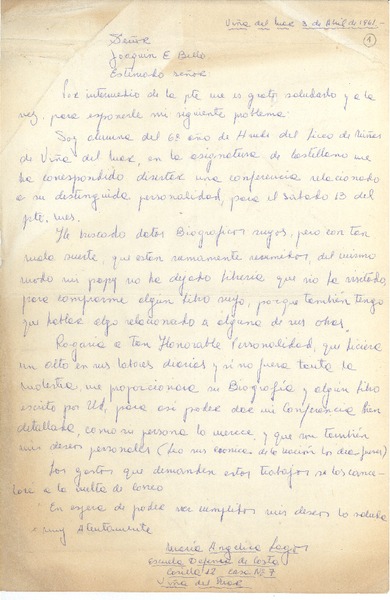 Viña del Mar 3 de Abril de 1961.-
1
Señor
Joaquin E. Bello
Estimado señor
Por intermedio de la pte me es grato saludarlo y a la
vez para exponerle mi siguiente problema:
Soy alumna del 6º año de Hnds del Liceo de Niñas
de Viña del Mar, en la asignatura de Castellano me
ha correspondido disertar una conferencia relacionado
a su distinguida personalidad, para el Sábado 13 del
pte. mes.
He buscado datos Biograficos suyos, pero con tan
mala suerte, que estan sumamente resumidos, del mismo
modo mi papy no ha dejado libreria que no ha visitado,
para comprarme algún libro suyo, porque también tengo
que hablar algo relacionado a alguna de sus obras.
Rogaria a tan Honorable Personalidad, que hiciera
un alto en sus labores diarias y si no fuera tanta la
molestia, me proporcionara su Biografía y algún libro
escrito por Ud, para asi poder dar mi Conferencia bien
detallada, como su persona lo merece, y que son también
mis deseos personales (Leo sus cronicas de la nación los dias jueves)
Los gastos que demanden estos trabajos se los cance-
laré a la vuelta de correo
En espera de poder ver cumplidos mis deseos lo saluda
muy Atentamente
Maria Angelica Lagos
Escuela Defensa de Costa
Casilla 12 Casa Nº 7
Viña del Mar